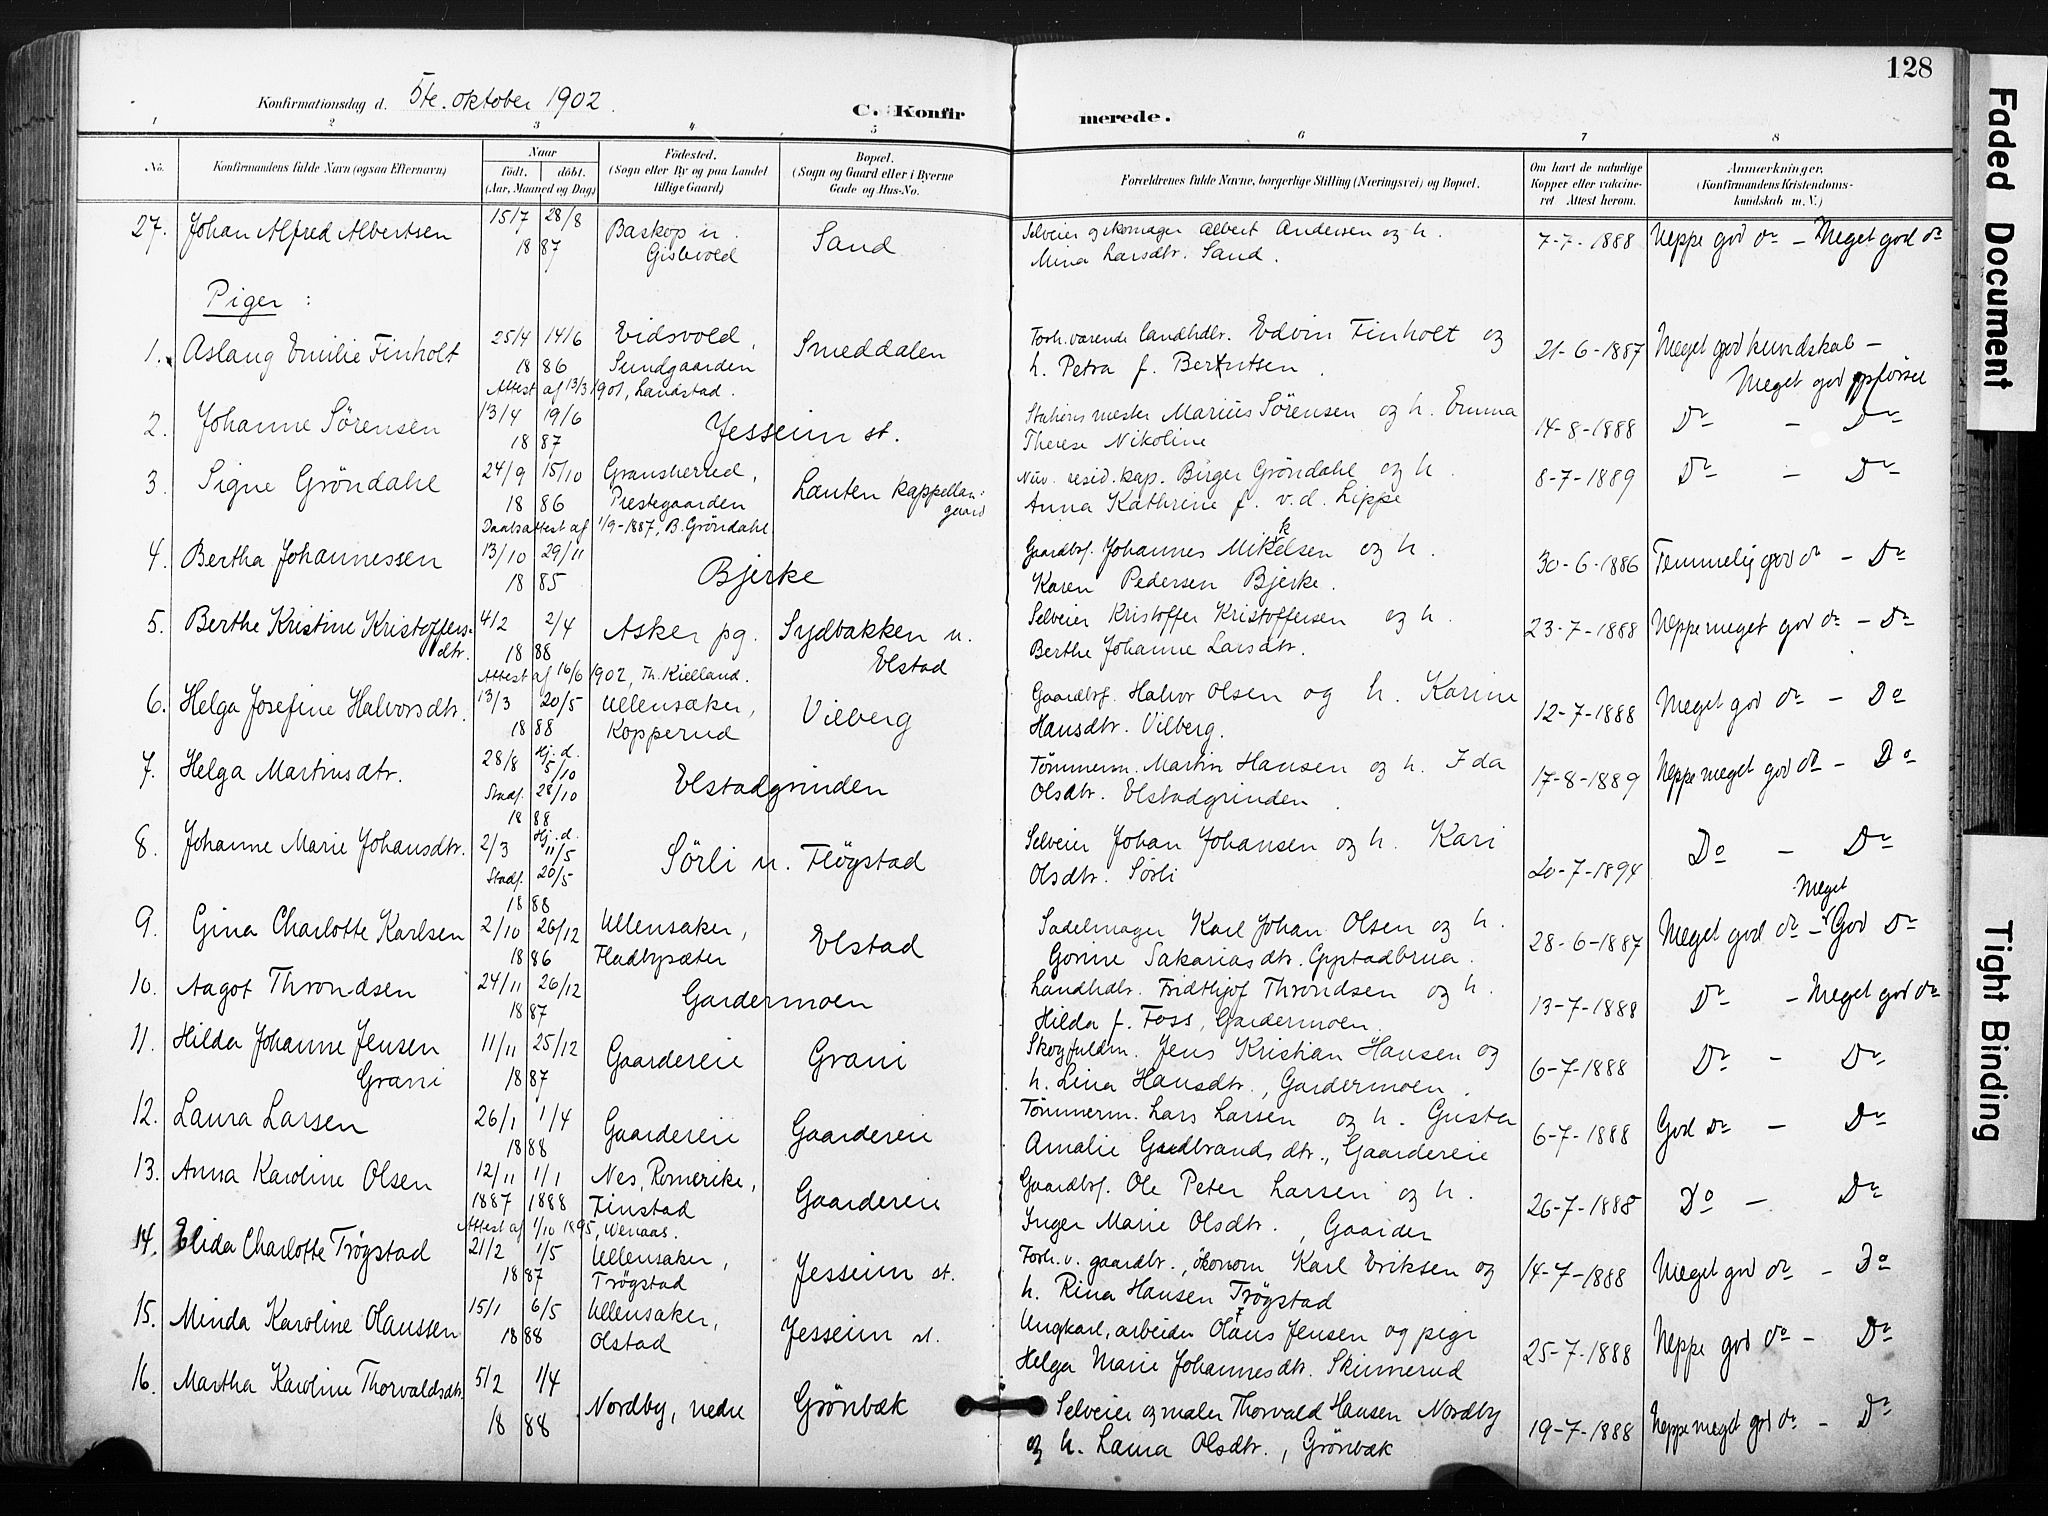 128
Konfirmationsdag d. 5te. oktober 1902.
C. Konfirmerede.
1 2 3 4 5 6 7 8
No. Konfirmandens fulde Navn (ogsaa Efternavn) Naar födt. döbt. (Aar, Maaned og Dag) Födested. (Sogn eller By og paa Landet tillige Gaard) Bopæl. (Sogn og Gaard eller i Byerne Gade og Hus-No. Forældrenes fulde Navne, borgerlige Stilling (Næringsvei) og Bopæl. Om havt de naturlige Kopper eller vakcineret Attest herom. Anmerkninger. (Konfirmandens Kristendomskundskab m. V.)
27. Johan Alfred Albertsen 15/7 28/8 1887 Baskop u. Gislevold Sand Selveier og skomager Albert Andersen og h. Mina Larsdtr. Sand. 7-7-1888 Neppe god do - Meget god do
Piger:
1. Aslaug Emilie Finholt 25/4 14/6 1886 Eidsvold, Sundgaarden Smeddalen Forh.værende landhdlr. Edvin Finholt og h. Petra f. Berntsen. 21-6-1887 Meget god kundskab - Meget god opførsel
Attest af 13/3 1901, Landstad.
2. Johanne Sörensen 13/4 19/6 1887 Jesseim st. Stationsmester Marius Sörensen og h. Emma Therese Nikoline 14-8-1888 Do - Do
3. Signe Gröndahl 24/9 15/10 1886 Gransherred, Prestegaarden Løuten kappellangaard Nuv. resid. kap. Birger Gröndahl og h. Anna Kathrine f. v.d. Lippe 8-7-1889 Do - Do
Daabsattest af 1/9-1887, B. Gröndahl
4. Bertha Johannessen 13/10 29/11 1885 Bjerke Gaardbr. Johannes Mikkelsen og h. Karen Pedersen Bjerke. 30-6-1886 Temmelig god do - Do
5. Berthe Kristine Kristoffersdtr. 4/2 2/4 1888 Asker pg. Sydbakken u. Elstad Selveier Kristoffer Kristoffersen og h. Berthe Johanne Larsdtr. 23-7-1888 Neppe meget god do - Do
Attest af 16/6 1902, Th. Kielland.
6. Helga Josefine Halvorsdtr. 13/3 20/5 1888 Ullensaker, Kopperud Vilberg Gaardbr. Halvor Olsen og h. Karine Hansdtr. Vilberg. 12-7-1888 Meget god do - Do
7. Helga Martinsdtr. 28/8 Hj.d. 5/10 Stadf. 28/10 1888 Elstadgrinden Tömmerm. Martin Hansen og h. Ida Olsdtr. Elstadgrinden. 17-8-1889 Neppe meget god do - Do
8. Johanne Marie Johansdtr. 2/3 Hj.d. 11/5 Stadf. 20/5 1888 Sörli u. Flögstad Selveier Johan Johansen og h. Kari Olsdtr. Sörli 20-7-1894 Do - Do
9. Gina Charlotte Karlsen 2/10 26/12 1886 Ullensaker, Fladbysæter Elstad Sadelmager Karl Johan Olsen og h. Gorine Sakariasdtr. Gystadbrua. 28-6-1887 Meget god do - Meget God Do
10. Aagot Throndsen 24/11 26/12 1887 Gardermoen Landhdlr. Fridthjof Throndsen og h. Hilda f. Foss, Gardermoen. 13-7-1888 Do - Meget god do
11. Hilda Johanne Jensen Grani 11/11 25/12 1887 Gaardereie Grani Skogfuldm. Jens Kristian Hansen og h. Lina Hansdtr., Gardermoen. 6-7-1888 Do - Do
12. Laura Larsen 26/1 1/4 1888 Gaardereie Gaardereie Tömmerm. Lars Larsen og h. Gusta Amalie Gudbrandsdtr., Gaardereie 6-7-1888 God do - Do
13. Anna Karoline Olsen 12/11 1/1 1887 1888 Nes, Romerike, Finstad Gaardereie Gaardbr. Ole Peter Larsen og h. Inger Marie Olsdtr., Gaarder 26-7-1888 Do - Do
Attest af 1/10 1895, Wenaas.
14. Elida Charlotte Trögstad 21/2 1/5 1887 Ullensaker, Trögstad Jesseim st. Forh.v. gaardbr., ökonom Karl Eriksen og h. Rina Hansen Trögstad 14-7-1888 Meget god do - Do
15. Minda Karoline Olaussen 15/1 6/5 1888 Ullensaker, Olstad Jesseim st. Ungkarl, arbeider Olaus Jensen og pige Helga Marie Johannesdtr. Skinnerud 25-7-1888 Neppe god do - Do
16. Martha Karoline Thorvaldsdtr. 5/2 1/4 1888 Nordby, nedre Grönbæk Selveier og maler Thorvald Hansen Nordby og h. Laura Olsdtr., Grönbæk 19-7-1888 Neppe meget god do - Do
Faded Document
Tight Binding